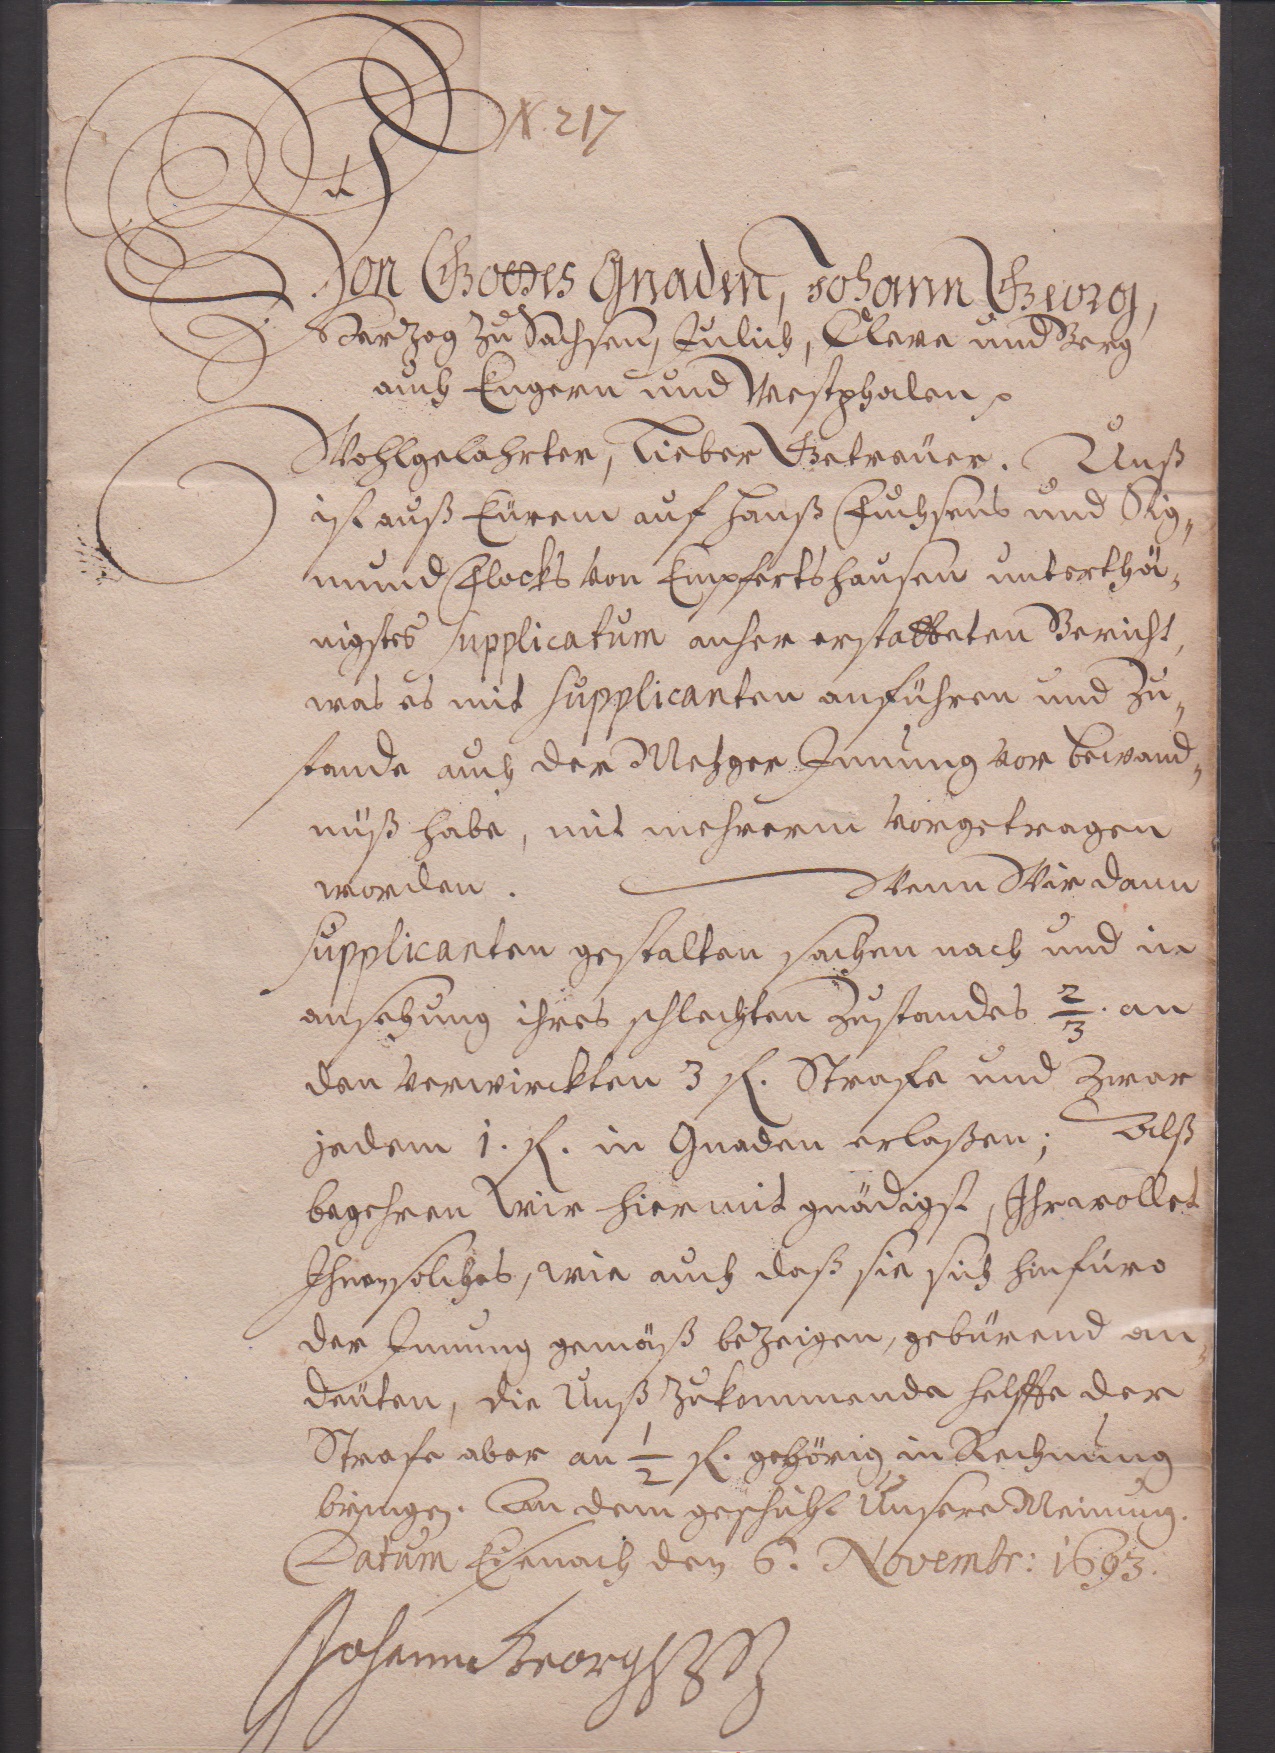 N. 217
Von Gottes Gnaden, Johann Georg,
Herzog zu Sachsen, Jülich, Cleve und Berg
auch Engern und Westphalen
Wohlgelahrter, Lieber Getreüer. Unß
ist auß Eürem auf Hanß Fuchsens und Sig-
mund Flocks von Empfertshausen unterthä-
nigstes supplicatum anher erstatteten Bericht,
was es mit Supplicanten anführen und Zu-
stande auch der Metzger Innung vor bewand-
nüß habe, mit mehrerm vorgetragen
worden. Wenn Wir dann
Supplicanten gestalten sachen nach und in
ansehung ihres schlechten Zustandes 2/3. an
den verwirckten 3 fl. Strafe und zwar
jedem 1. fl. in Gnaden erlaßen; Alß
begehren Wir hiermit gnädigst, Ihr wollet
Ihnen solches, wie auch daß sie sich hinfüro
der Innung gemäß bezeigen, gebürend an-
deüten, die Unß zukommende helffte der
Strafe aber an 1/2 fl. gehörig in Rechnung
bringen. An dem geschicht Unsere Meinung.
Datum Eisenach den 6. Novembr: 1693.
Johann Georg HZS